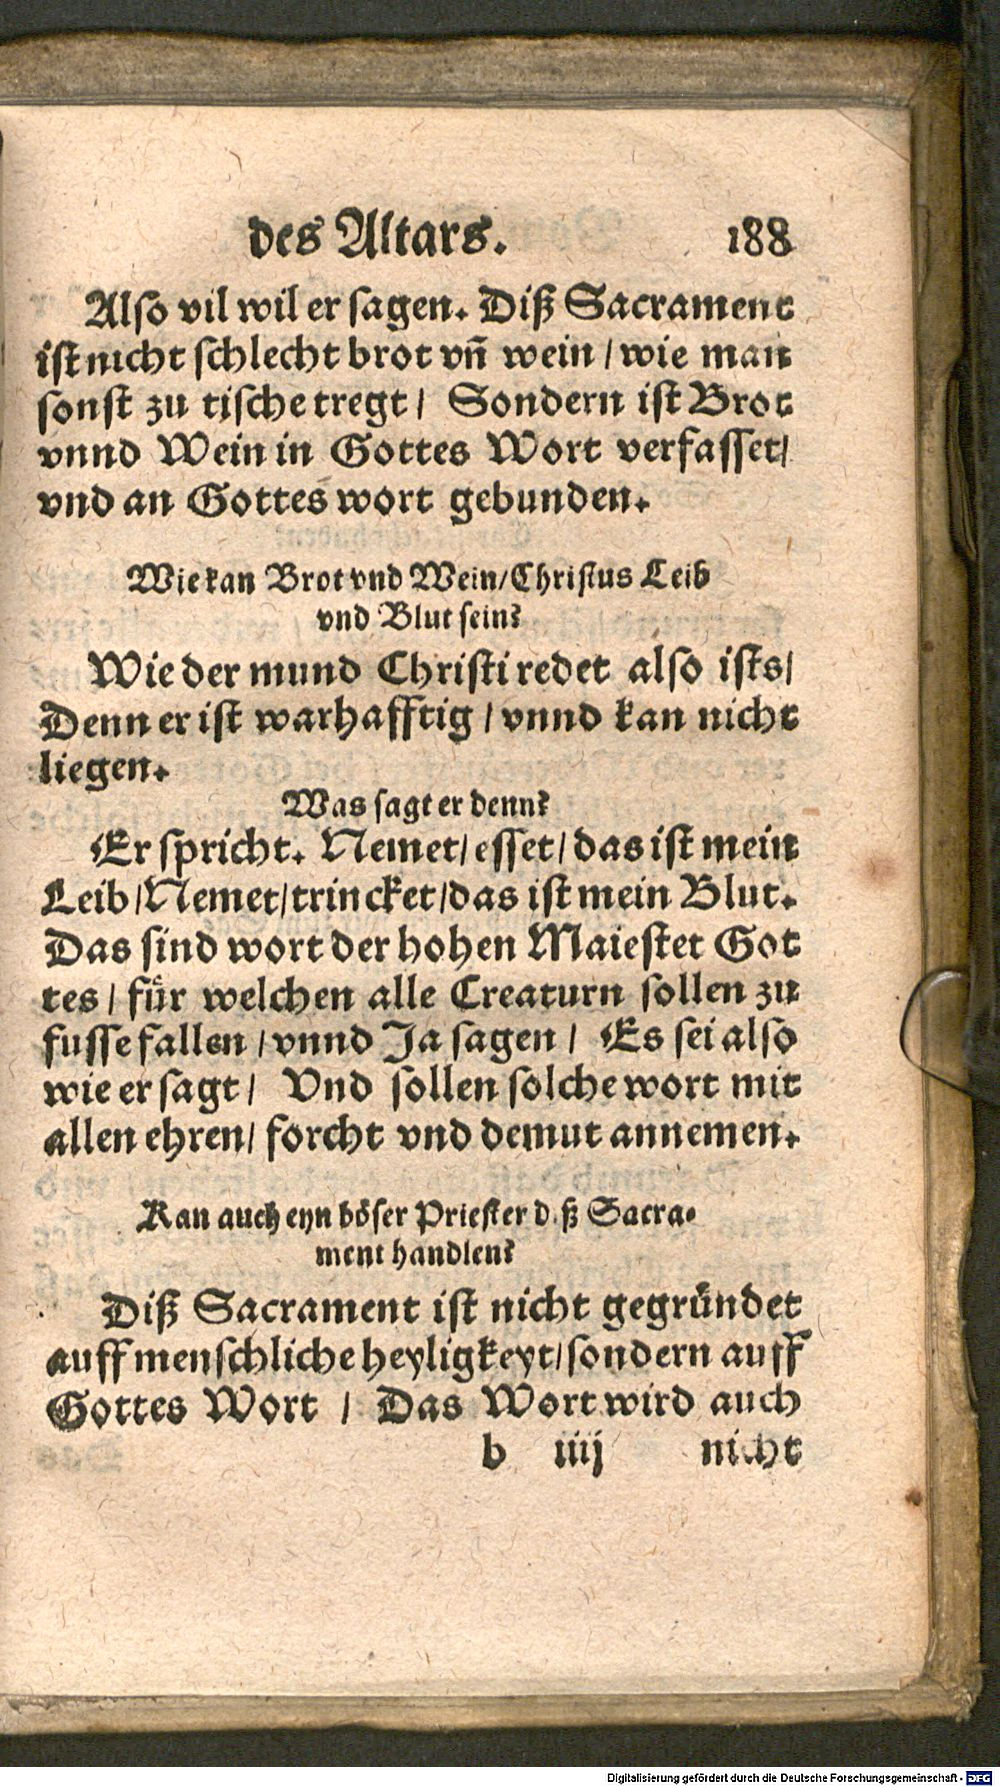 des Altars. 188
Also vil wil er sagen. Diß Sacrament
ist nicht schlecht brot vñ wein / wie man
sonst zu tische tregt / Sondern ist Brot
vnnd Wein in Gottes Wort verfasset /
vnd an Gottes wort gebunden.
Wie kan Brot vnd Wein / Christus Leib
vnd Blut sein?
Wie der mund Christi redet also ists /
Denn er ist warhafftig / vnnd kan nicht
liegen.
Was sagt er denn?
Er spricht. Nemet / esset / das ist mein
Leib / Nemet / trincket / das ist mein Blut.
Das sind wort der hohen Maiestet Got
tes / fuͤr welchen alle Creaturn sollen zu
fusse fallen / vnnd Ja sagen / Es sei also
wie er sagt / Vnd sollen solche wort mit
allen ehren / forcht vnd demut annemen.
Kan auch eyn boͤser Priester diß Sacra-
ment handlen?
Diß Sacrament ist nicht gegruͤndet
auff menschliche heyligkeyt / sondern auff
Gottes Wort / Das Wort wird auch
b iiij nicht
Digitalisierung gefördert durch die Deutsche Forschungsgemeinschaft - DFG